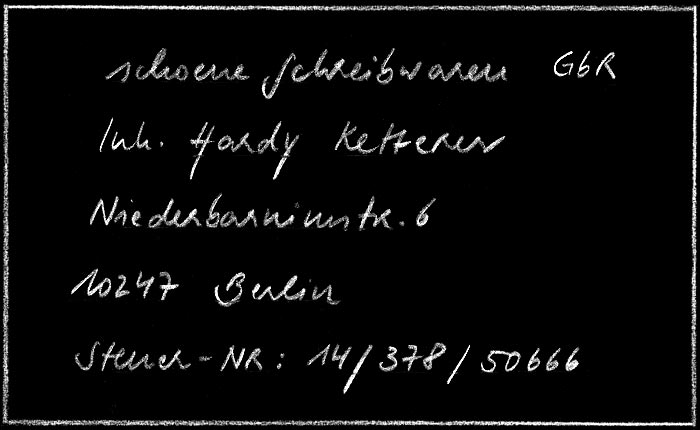 schoene Schreibwaren GbR
Inh. Hardy Ketterer
Niederbarnimstr. 6
10247 Berlin
Steuer-NR: 14/378/50666